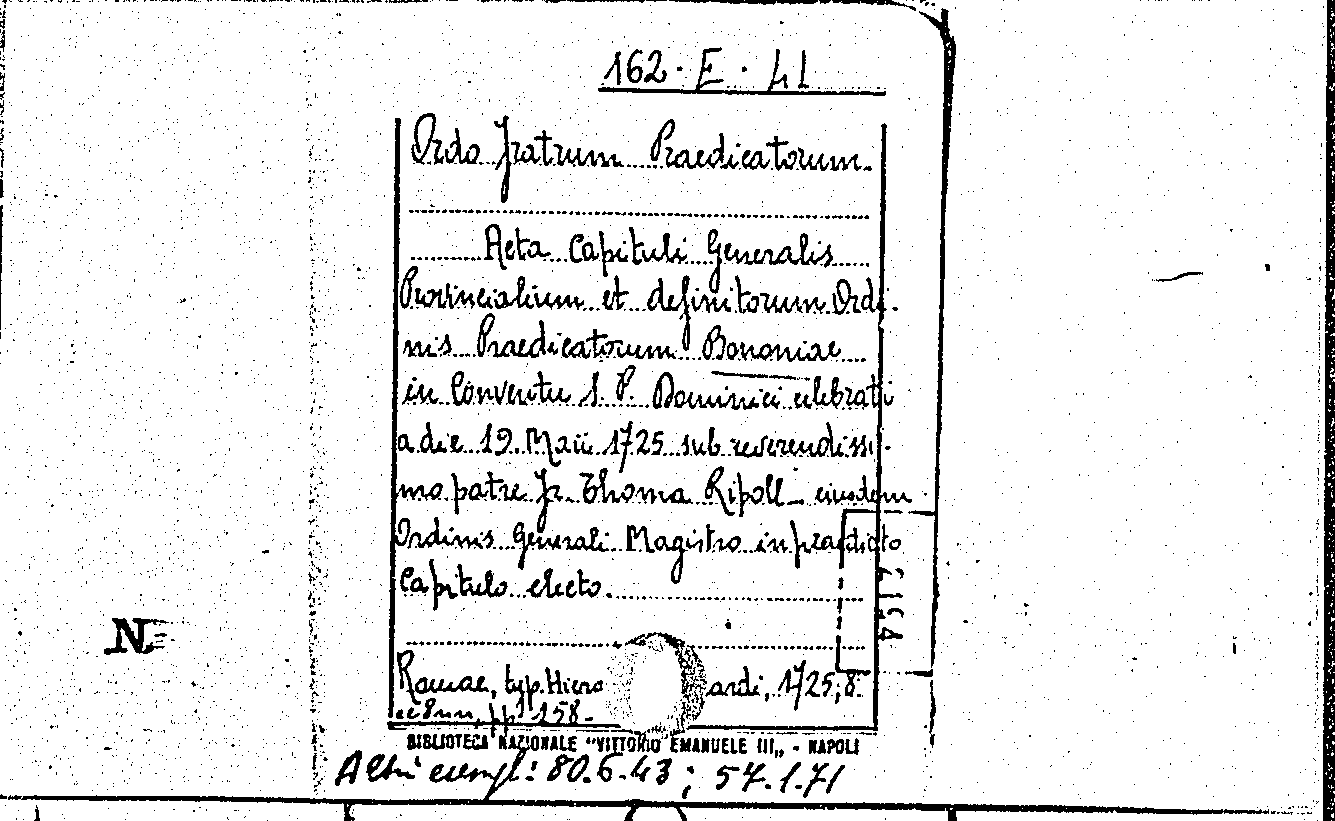 162. E. 41
Ordo Fratrum Praedicatorum.
Acta Capituli Generalis
Provincialium et definitorum Ordi-
nis Praedicatorum Bononiae
in Conventu S. P. Dominici celebrati
a die 19. Maii 1725 sub reverendissi-
mo patre Fr. Thoma Ripoll eiusdem
Ordinis Generali Magistro in praedicto
Capitulo electo.
N
Romae, typ. Hiero ardi, 1725; 8.
pp. 158.
BIBLIOTECA NAZIONALE "VITTORIO EMANUELE III„ - NAPOLI
Altri esempl: 80.6.43; 57.1.71